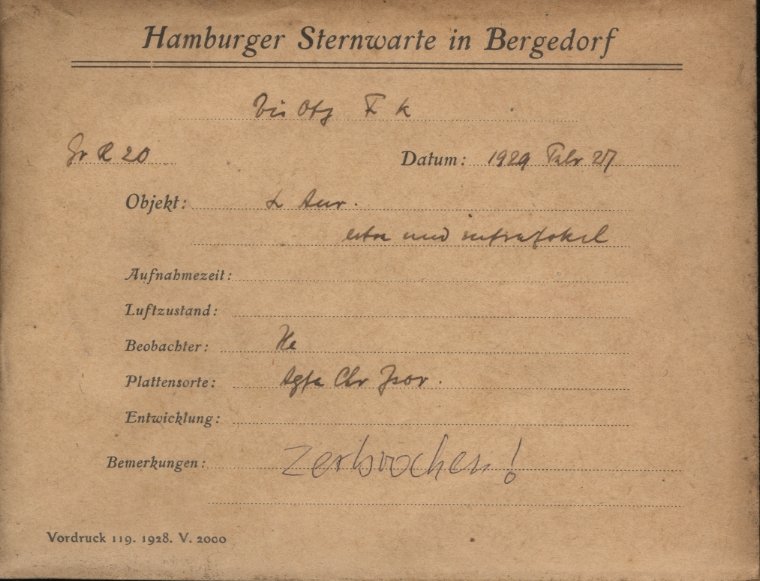 Hamburger Sternwarte in Bergedorf
Vis Obj F k
Gr R 20
Datum: 1929 Febr 27
Objekt: α Aur.
extra und intrafokal
Aufnahmezeit:
Luftzustand:
Beobachter: He
Plattensorte: Agfa Chr Isor.
Entwicklung:
Bemerkungen: zerbrochen!
Vordruck 119. 1928. V. 2000